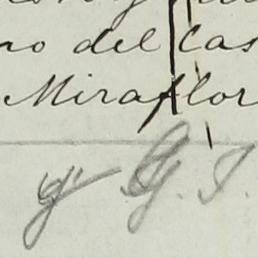 no del cas
Miraflor
y G. J.